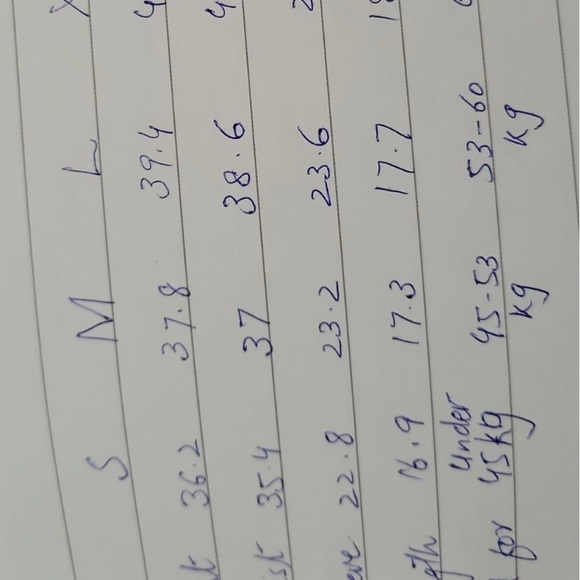 S M L X
36.2 37.8 39.4
35.4 37 38.6
22.8 23.2 23.6
16.9 17.3 17.7
for Under 45kg 45-53 kg 53-60 kg